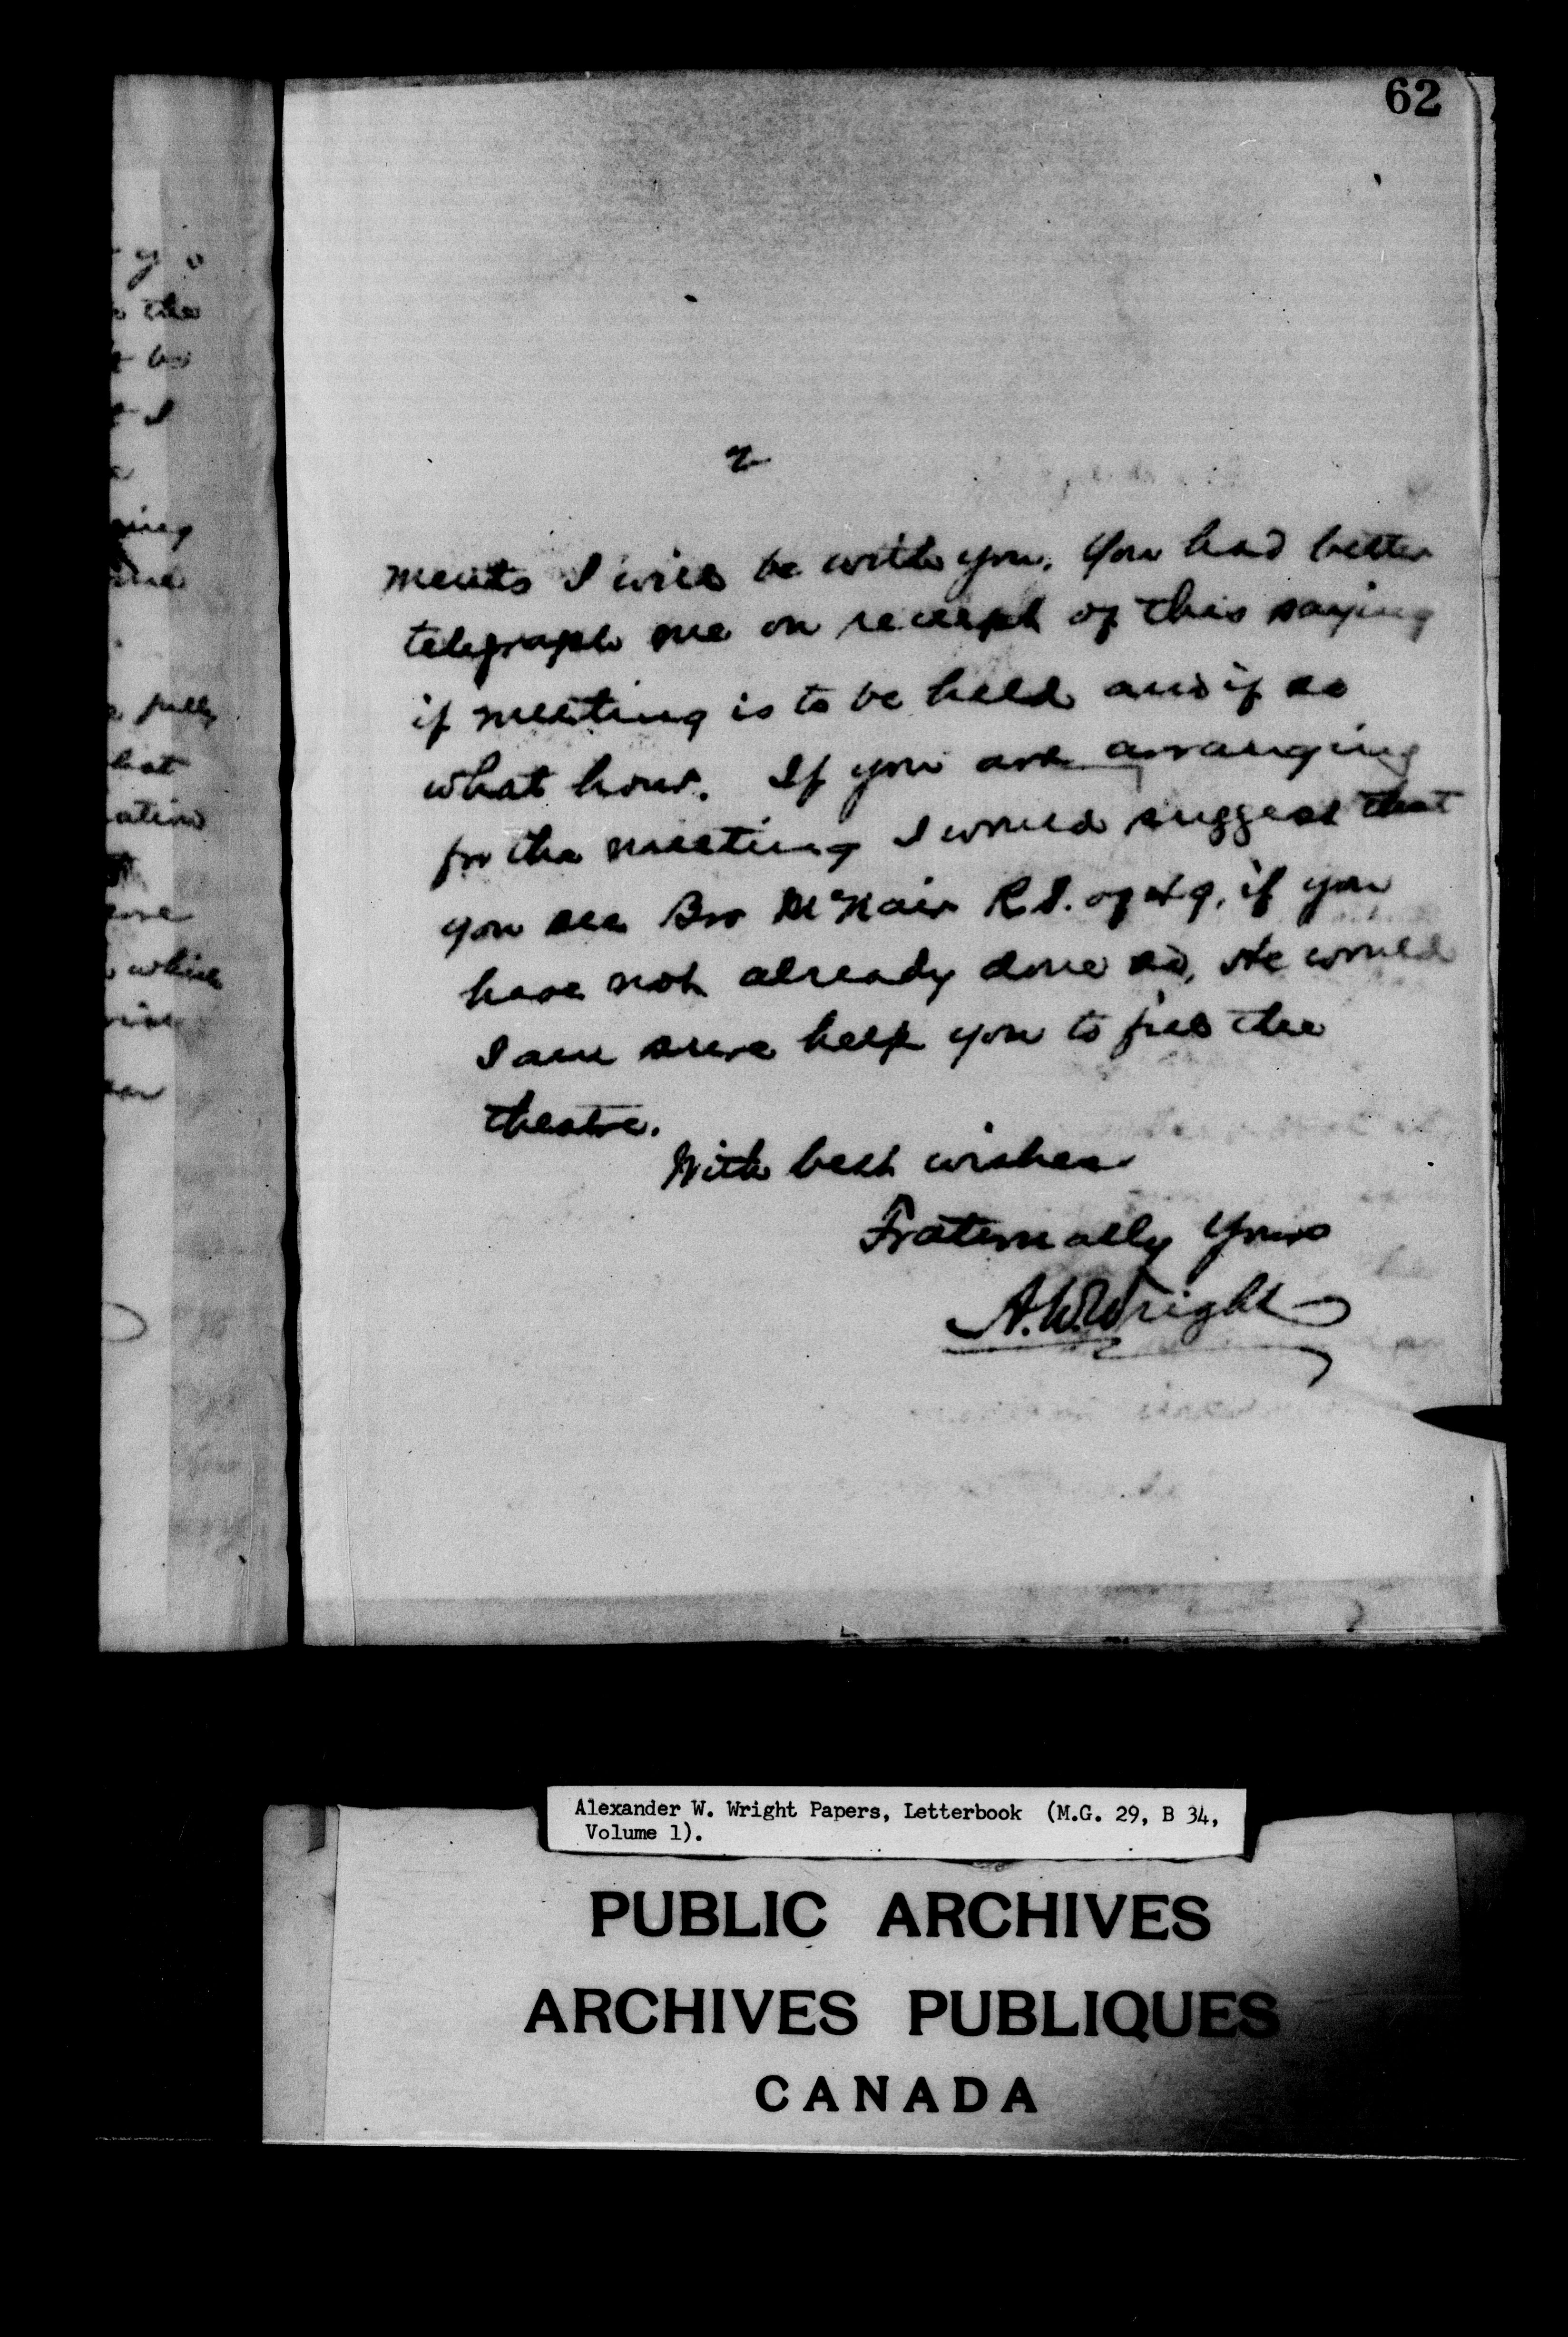 62
2
ments I will be with you. You had better
telegraph me on receipt of this saying
if meeting is to be held and if so
what hour. If you are arranging
for the meeting I would suggest that
you see Bro McNair R.S. of 49, if you
have not already done so, He would
I am sure help you to fill the
theatre.
With best wishes
Fraternally Yours
A.W. Wright
the
t I
fully
which
Alexander W. Wright Papers, Letterbook (M.G. 29, B 34,
Volume 1).
PUBLIC ARCHIVES
ARCHIVES PUBLIQUES
CANADA